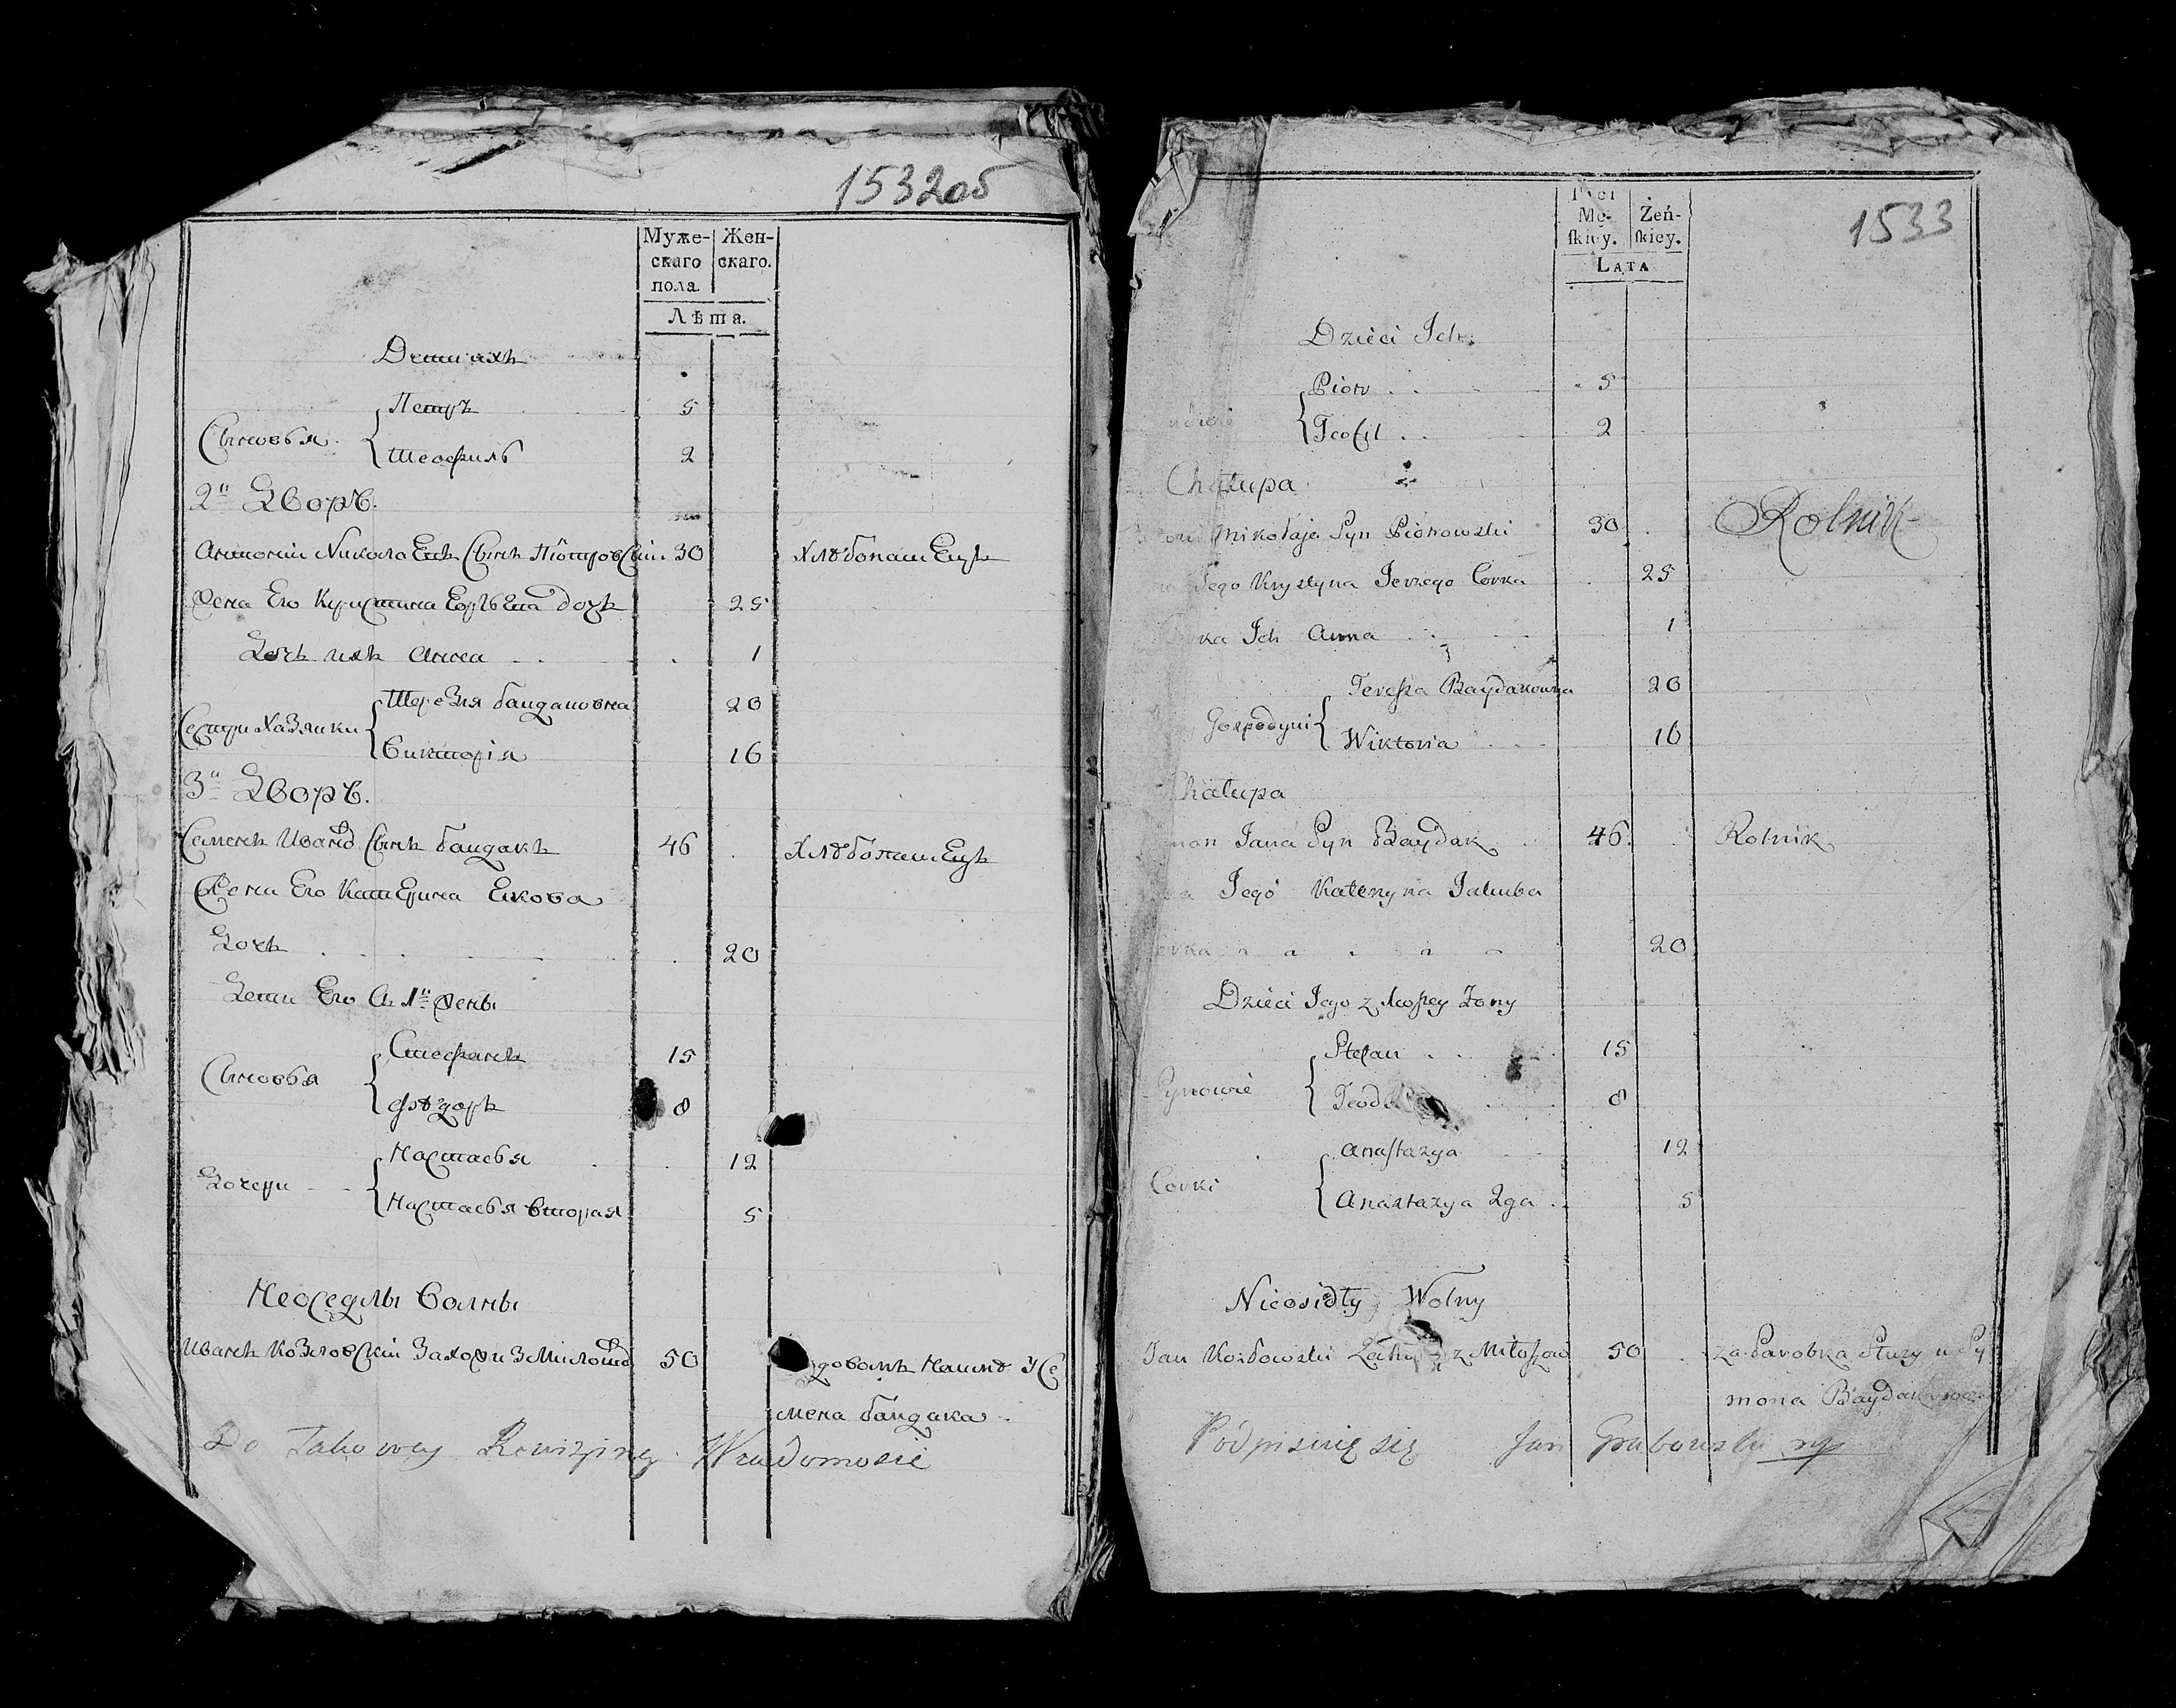 1532об
Муже-
скаго
пола
Жен-
скаго.
Лѣта.
Детиихъ
Сыновья
Петръ 5
Теофиль 2
2й Дворъ.
Антоній Николаевъ Сынъ Піотровскій 30 Хлѣбопашецъ
Жена Его Кристина дочь 25
Дочь ихъ Анна 1
Сестри Хазяики
Терезія Байдаковна 20
Викторія 16
3й Дворъ.
Семенъ Ивана Сынъ байдакъ 46 Хлѣбопашецъ
Жена Его Катерина Екова
Дочь 20
Дети Его Съ 1й Жены
Сыновья
Стефанъ 15
Ѳѣдоръ 8
Дочери
Настасья 12
Настасья вторая 5
Неоседлы Волны
Иванъ Козловскій 50
мена байдака
Do Takowey Rewizyiney Wiadomości
1533
Mę-
skiey.
Żeń-
skiey.
LATA
Dzieci Ich.
Piotr 5
Teofil 2
Chałupa
Mikołaja Syn Piotrowski 30 Rolnik
Jego Krystyna Jerzego Corka 25
Ich Anna 1
Gospodyni
Teressa Baydakowna 20
Wiktoria 16
Chałupa
Jana Syn Baydak 46. Rolnik
Jego Kateryna Jakuba
20
Dzieci Jego z Zony
Synowie
Stefan 15
8
Corki
Anastazya 12
Anastazya 2ga 5
Nieosidły Wolny
Jan Kozłowski 50 za Parobka Służy u Sy
mona
Podpisuię się Jan Grabowski mp